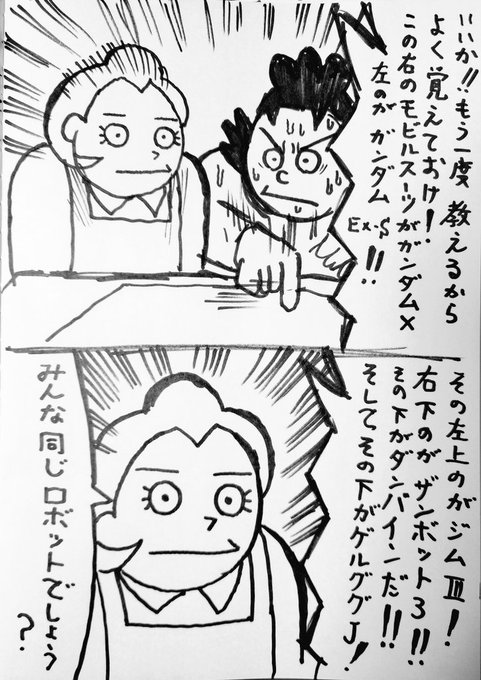 いいか!!もう一度 教えるから
よく覚えておけ!
この右のモビルスーツがガンダムX
左のが ガンダム Ex-S!!
その左上のがジムⅢ!
右下のが ザンボット3!!
その下がダンバインだ!!
そして その下がゲルググJ!
みんな 同じロボットでしょう?